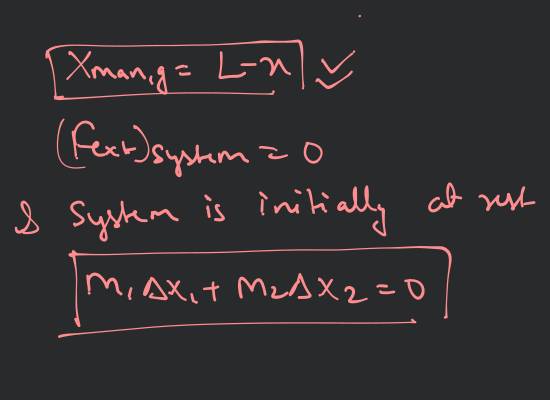 Xman,g = L-x
(Fext)system = 0
& System is initially at rest
m₁ΔX₁ + m₂ΔX₂ = 0